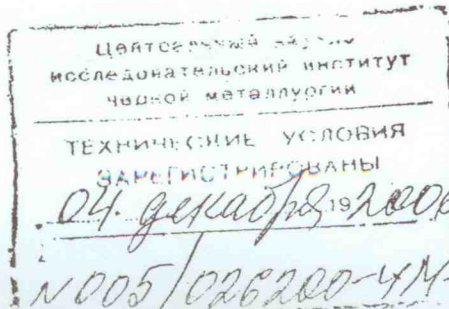 Центральный научно
исследовательский институт
черной металлургии
ТЕХНИЧЕСКИЕ УСЛОВИЯ
ЗАРЕГИСТРИРОВАНЫ
04. декабря 19 2006
N 005/026200-ЧМ-